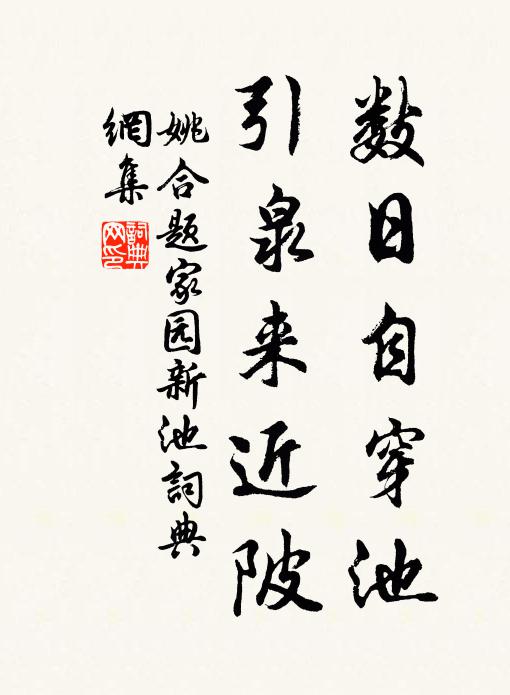 数日自穿池
引泉来近陂
姚合题家园新池詞典
網集
詞典网印